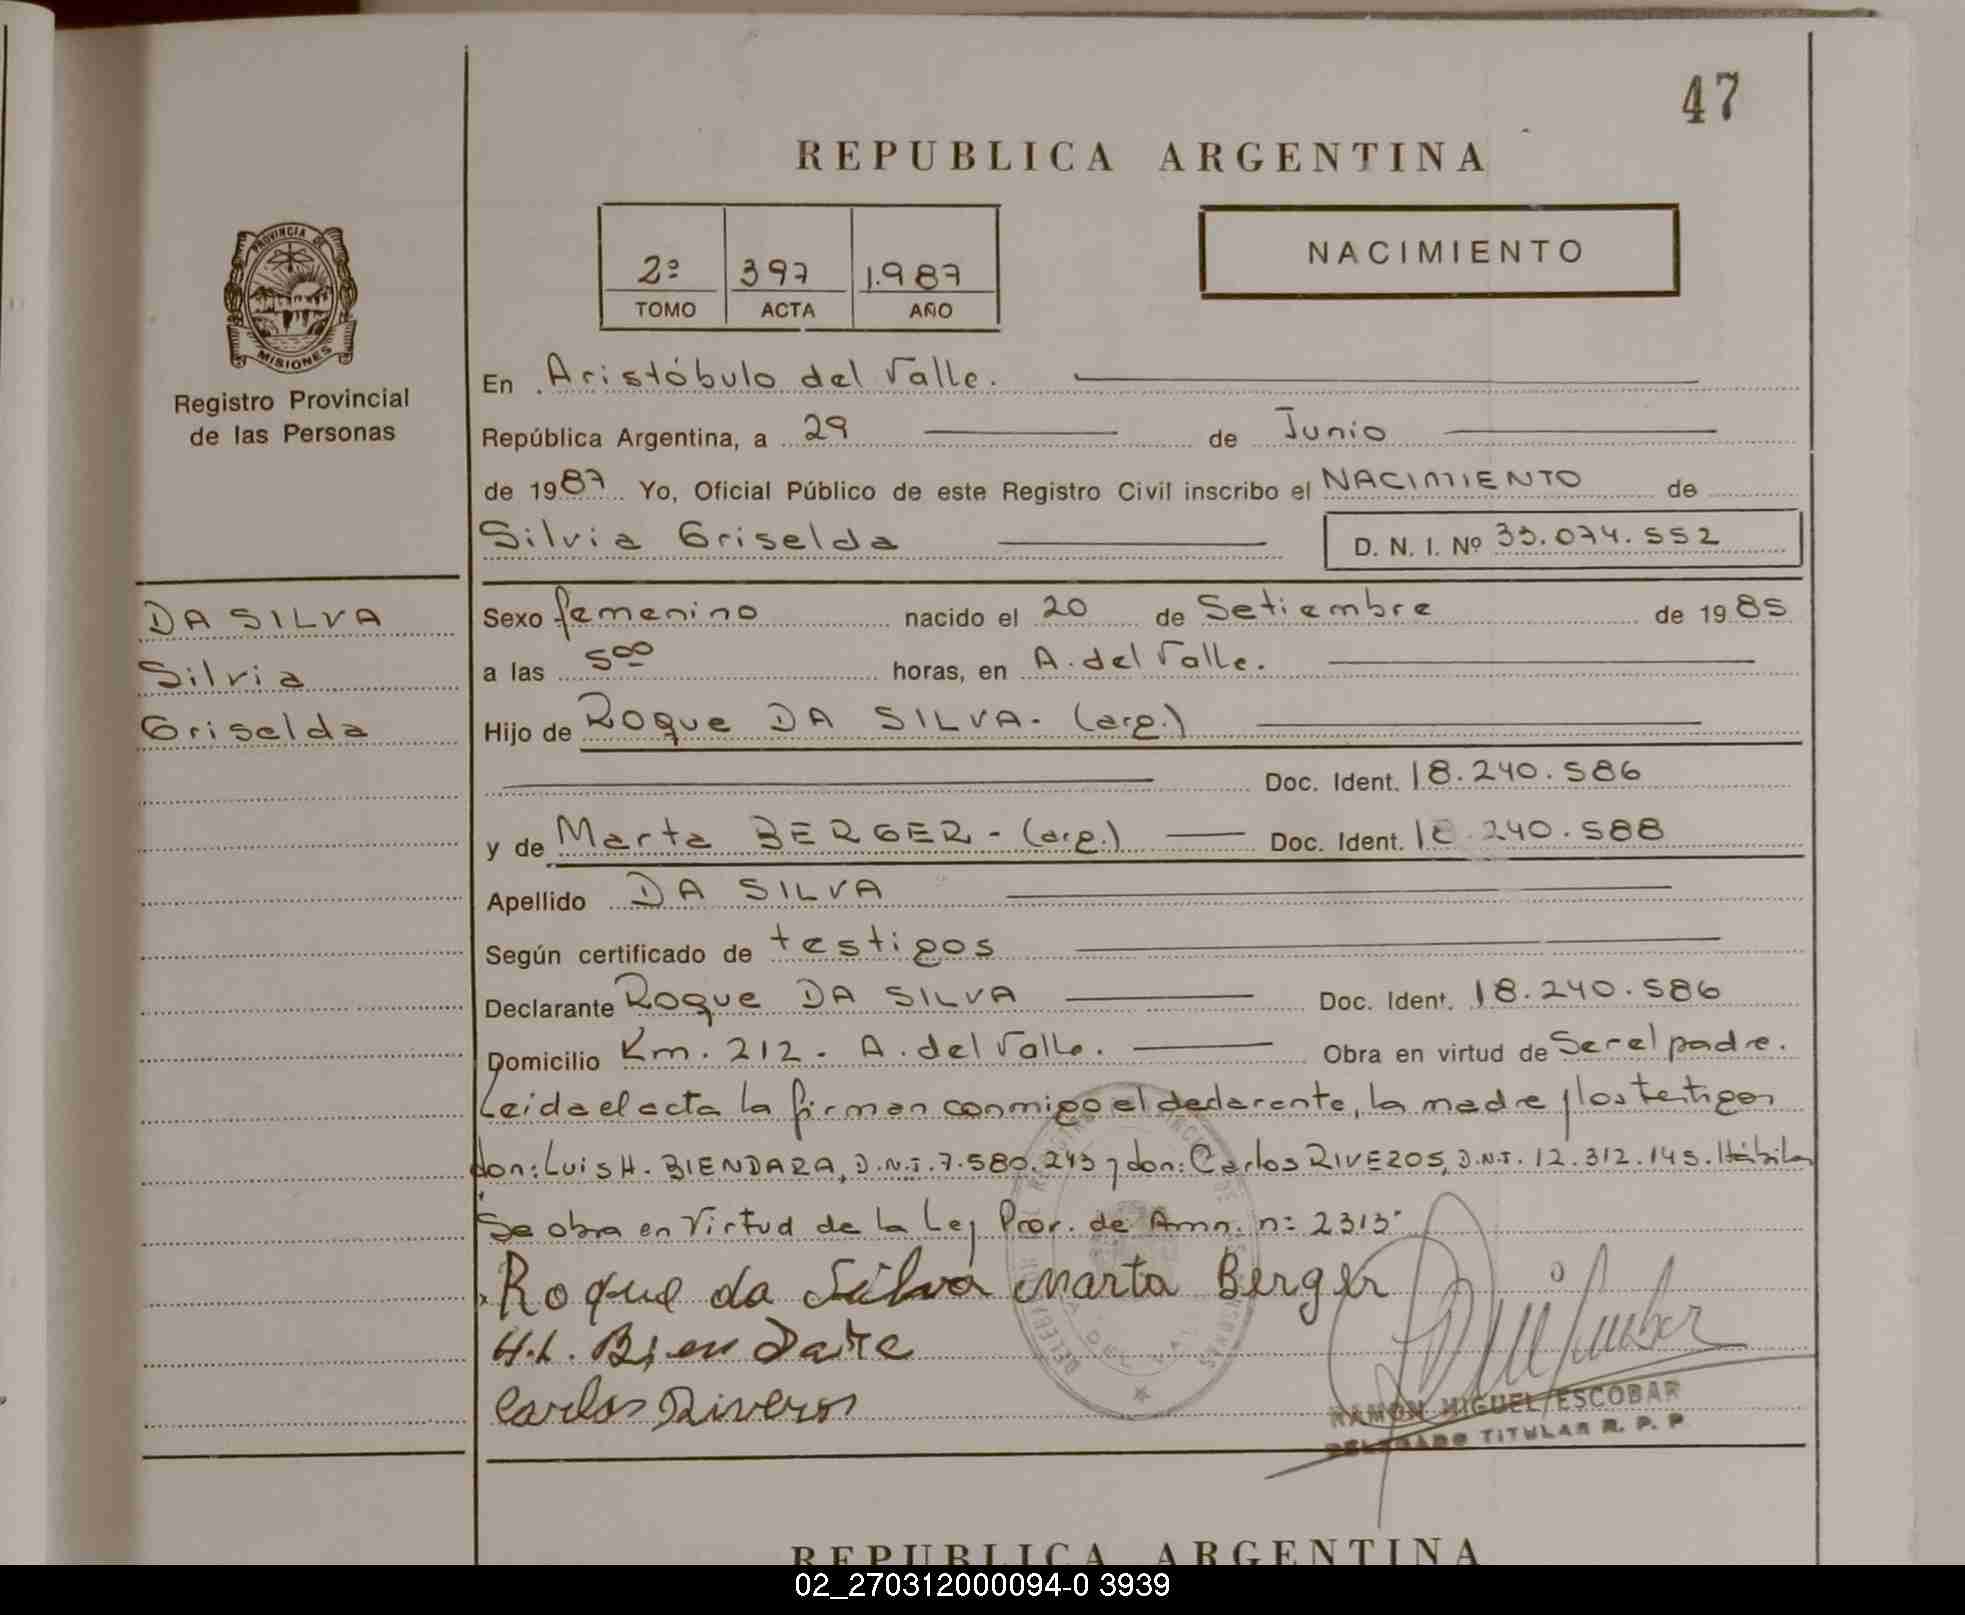 47
REPUBLICA ARGENTINA
2º 397 1.987
TOMO ACTA AÑO
NACIMIENTO
PROVINCIA DE
MISIONES
Registro Provincial
de las Personas
En Aristóbulo del Valle.
República Argentina, a 29 de Junio
de 1987 Yo, Oficial Público de este Registro Civil inscribo el NACIMIENTO de
Silvia Griselda D. N. I. Nº 33.074.552
DA SILVA
Silvia
Griselda
Sexo femenino nacido el 20 de Setiembre de 1985
a las 5ºº horas, en A. del Valle.
Hijo de Roque DA SILVA- (arg.)
Doc. Ident. 18.240.586
y de Marta BERGER - (arg.) Doc. Ident. 18.240.588
Apellido DA SILVA
Según certificado de testigos
Declarante Roque DA SILVA Doc. Ident. 18.240.586
Domicilio Km. 212. A. del Valle. Obra en virtud de Ser el padre.
Leida el acta la firman conmigo el declarante, la madre y los testigos
don: Luis H. BIENDARA, D.N.I. 7.580.243 y don: Carlos RIVEROS, D.N.I. 12.312.145. Hábiles
Se obra en Virtud de la Ley Prov. de Amn. nº 2313
Roque da Silva Marta Berger
H.L. Biendara
Carlos Riveros
RAMON MIGUEL ESCOBAR
DELEGADO TITULAR R. P. P
REPUBLICA ARGENTINA
02_270312000094-0 3939